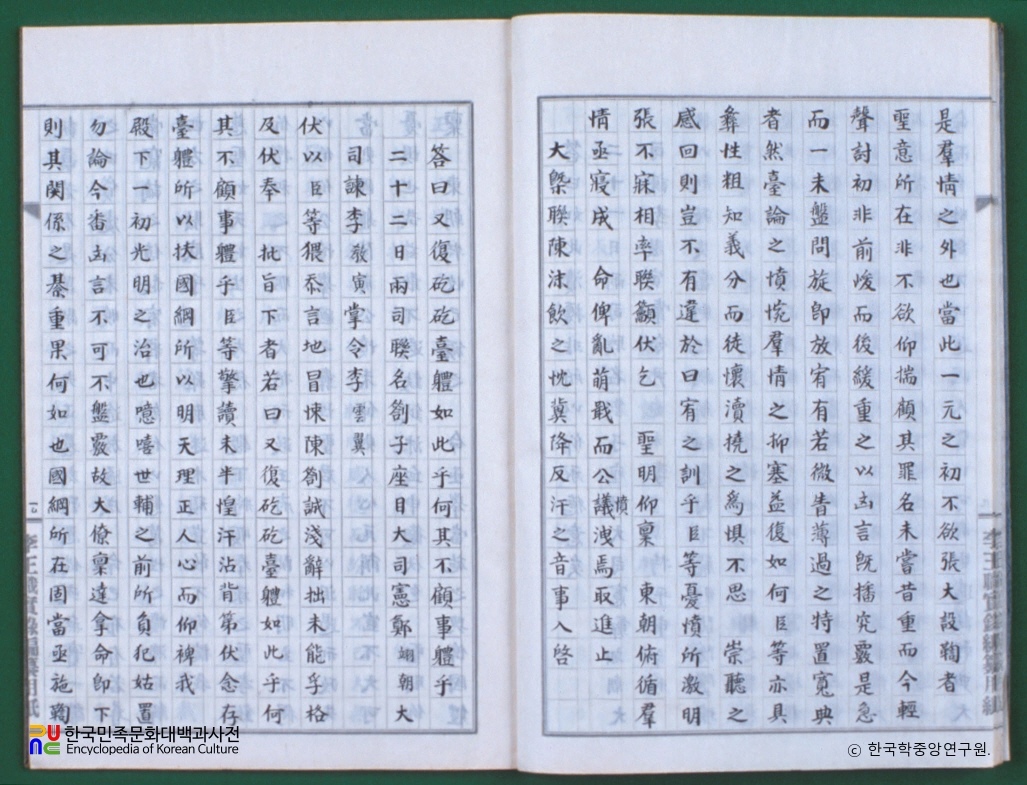 是羣情之外也當此一元之初不欲張大設鞫者
聖意所在非不欲仰揣顧其罪名未嘗昔重而今輕
聲討初非前峻而後緩重之以凶言旣播究覈是急
而一未盤問旋卽放宥有若微眚薄過之特置寬典
者然臺論之憤惋羣情之抑塞益復如何臣等亦具
彝性粗知義分而徒懷瀆撓之爲懼不思 崇聽之
感回則豈不有違於曰宥之訓乎臣等憂憤所激明
張不寐相率聯籲伏乞 聖明仰稟 東朝俯循羣
情亟寢成 命俾亂萌戢而公議洩焉取進止
憤
大槩聯陳沫飮之忱冀降反汗之音事入啓
答曰又復矻矻臺軆如此乎何其不顧事軆乎
二十二日兩司聯名劄子座目大司憲鄭 翊朝 大
司諫李敎寅掌令李雲翼
伏以臣等猥忝言地冒悚陳劄誠淺辭拙未能孚格
及伏奉 批旨下者若曰又復矻矻臺軆如此乎何
其不顧事軆乎臣等擎讀未半惶汗沾背第伏念存
臺軆所以扶國綱所以明天理正人心而仰裨我
殿下一初光明之治也噫嘻世輔之前所負犯姑置
勿論今番凶言不可不盤覈故大僚稟達拿命卽下
則其関係之綦重果何如也國綱所在固當亟施鞫
李王職實錄編纂用紙
李王職實錄編纂用紙
한국민족문화대백과사전
Encyclopedia of Korean Culture
© 한국학중앙연구원.